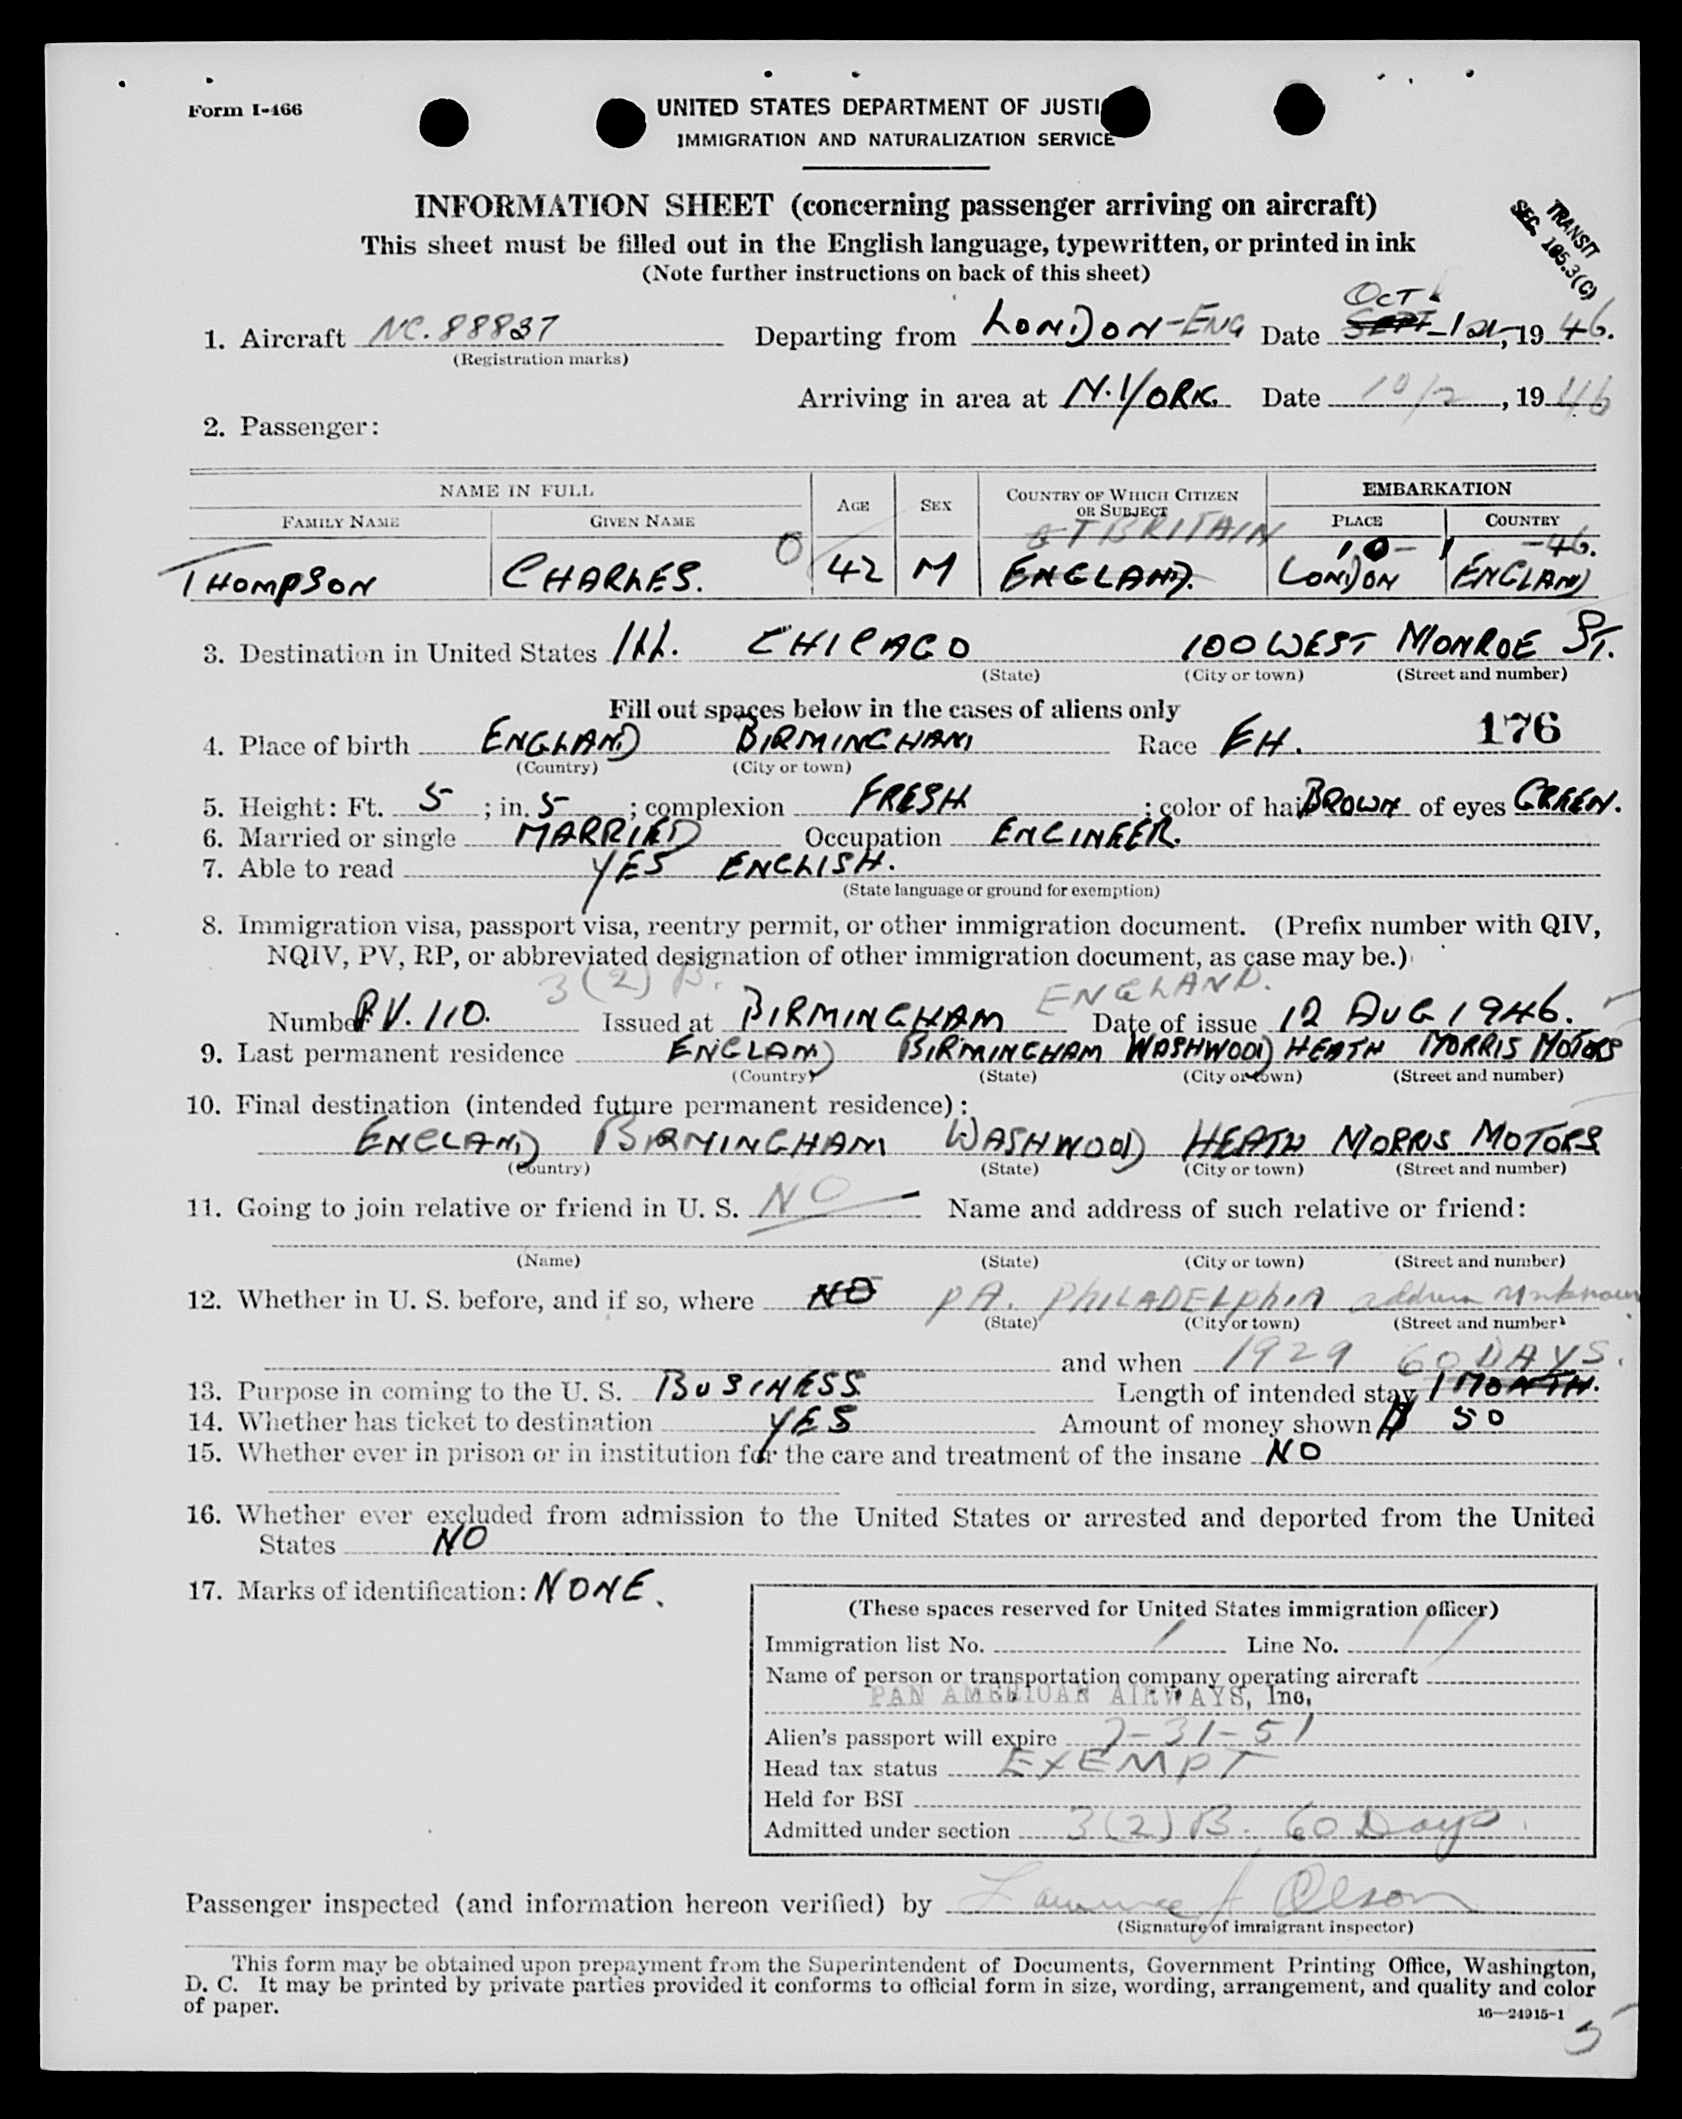 Form I-466
UNITED STATES DEPARTMENT OF JUSTI
IMMIGRATION AND NATURALIZATION SERVICE
INFORMATION SHEET (concerning passenger arriving on aircraft)
This sheet must be filled out in the English language, typewritten, or printed in ink
(Note further instructions on back of this sheet)
TRANSIT
SEC. 165.3(C)
OCT
1. Aircraft NC. 88837 Departing from LONDON-ENG Date SEPT-1st, 1946.
(Registration marks)
Arriving in area at N.YORK. Date 10/2, 1946
2. Passenger:
NAME IN FULL AGE SEX COUNTRY OF WHICH CITIZEN OR SUBJECT EMBARKATION
FAMILY NAME GIVEN NAME PLACE COUNTRY
GT BRITAIN 10- 1 -46.
THOMPSON CHARLES. 0 42 M ENGLAND. LONDON ENGLAND
3. Destination in United States ILL. CHICAGO 100 WEST MONROE ST.
(State) (City or town) (Street and number)
Fill out spaces below in the cases of aliens only
176
4. Place of birth ENGLAND BIRMINGHAM Race EH.
(Country) (City or town)
5. Height: Ft. 5; in. 5; complexion FRESH; color of hair BROWN of eyes GREEN.
6. Married or single MARRIED Occupation ENGINEER.
7. Able to read YES ENGLISH.
(State language or ground for exemption)
8. Immigration visa, passport visa, reentry permit, or other immigration document. (Prefix number with QIV,
NQIV, PV, RP, or abbreviated designation of other immigration document, as case may be.)
3(2)B. ENGLAND.
Number P.V. 110. Issued at BIRMINGHAM Date of issue 12 AUG 1946.
9. Last permanent residence ENGLAND BIRMINGHAM WASHWOOD HEATH MORRIS MOTORS
(Country) (State) (City or town) (Street and number)
10. Final destination (intended future permanent residence):
ENGLAND BIRMINGHAM WASHWOOD HEATH MORRIS MOTORS
(Country) (State) (City or town) (Street and number)
11. Going to join relative or friend in U. S. NO Name and address of such relative or friend:
(Name) (State) (City or town) (Street and number)
12. Whether in U. S. before, and if so, where NO PA. PHILADELPHIA address unknown
(State) (City or town) (Street and number)
and when 1929 60 DAYS.
13. Purpose in coming to the U. S. BUSINESS Length of intended stay 1 MONTH.
14. Whether has ticket to destination YES Amount of money shown $ 50
15. Whether ever in prison or in institution for the care and treatment of the insane NO
16. Whether ever excluded from admission to the United States or arrested and deported from the United
States NO
17. Marks of identification: NONE.
(These spaces reserved for United States immigration officer)
Immigration list No. 1 Line No. 11
Name of person or transportation company operating aircraft
PAN AMERICAN AIRWAYS, Inc.
Alien's passport will expire 7-31-51
Head tax status EXEMPT
Held for BSI
Admitted under section 3(2)B. 60 Days.
Passenger inspected (and information hereon verified) by Lawrence J Olson
(Signature of immigrant inspector)
This form may be obtained upon prepayment from the Superintendent of Documents, Government Printing Office, Washington,
D. C. It may be printed by private parties provided it conforms to official form in size, wording, arrangement, and quality and color
of paper.
16—24915-1
5